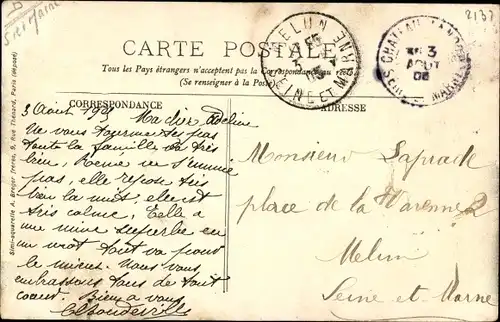 2137
CARTE POSTALE
Tous les Pays étrangers n'acceptent pas la Correspondance au recto
(Se renseigner à la Poste)
CORRESPONDANCE
ADRESSE
MELUN
SEINE ET MARNE
CHATEAU LANDON
3
AOUT
Simi-aquarelle A. Breger frères, 9, Rue Thénard, Paris (déposé)
3 Août
Ma chère Adeline
Ne vous tourmentez pas
toute la famille va très
bien, ne s'ennuie
pas, elle repose très
bien la nuit, elle est
très calme, Elle a
une mine superbe en
un mot tout va pour
le mieux. Nous vous
embrassons tous de tout
coeur. Bien a vous
Monsieur Laprade
place de la Varenne 2
Melun
Seine et Marne